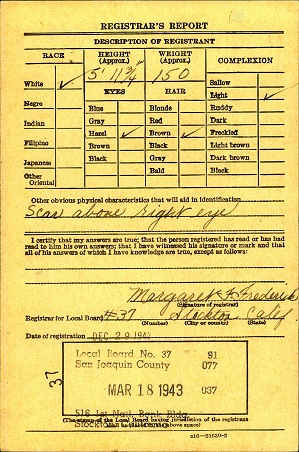 REGISTRAR'S REPORT
DESCRIPTION OF REGISTRANT
RACE
HEIGHT
(Approx.)
WEIGHT
(Approx.)
COMPLEXION
White ✓
5' 11 3/4"
150
Sallow
EYES
HAIR
Light ✓
Negro
Blue
Blonde
Ruddy
Indian
Gray
Red
Dark
Filipino
Hazel ✓
Brown ✓
Freckled
Brown
Black
Light brown
Japanese
Black
Gray
Dark brown
Other
Oriental
Bald
Black
Other obvious physical characteristics that will aid in identification
Scar above right eye
I certify that my answers are true; that the person registered has read or has had
read to him his own answers; that I have witnessed his signature or mark and that
all of his answers of which I have knowledge are true, except as follows:
Margaret Frederick
(Signature of registrar)
Registrar for Local Board #37 Stockton Calif
(Number) (City or county) (State)
Date of registration DEC 29 1942
Local Board No. 37 91
San Joaquin County 077
MAR 18 1943 037
516 1st Natl. Bank Bldg.
(The stamp of the Local Board having jurisdiction of the registrant
STOCKTON
above space)
37